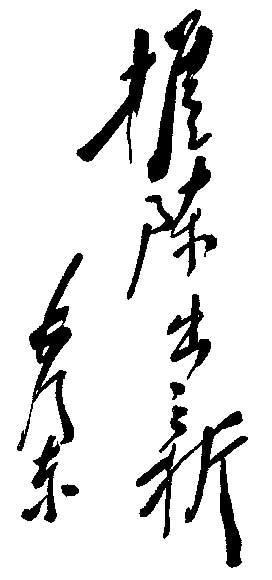 推陈出新
毛泽东